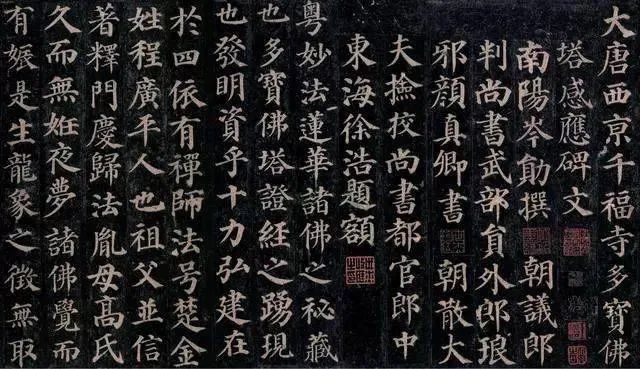 大唐西京千福寺多寶佛
塔感應碑文
南陽岑勛撰 朝議郎
判尚書武部貟外郎琅
邪顏真卿書 朝散大
夫撿挍尚書都官郎中
東海徐浩題額
粵妙法蓮華諸佛之祕藏
也多寶佛塔證經之踴現
也發明資乎十力弘建在
於四依有禪師法号楚金
姓程廣平人也祖父並信
著釋門慶歸法胤母髙氏
久而無姙夜夢諸佛覺而
有娠是生龍象之徵無取